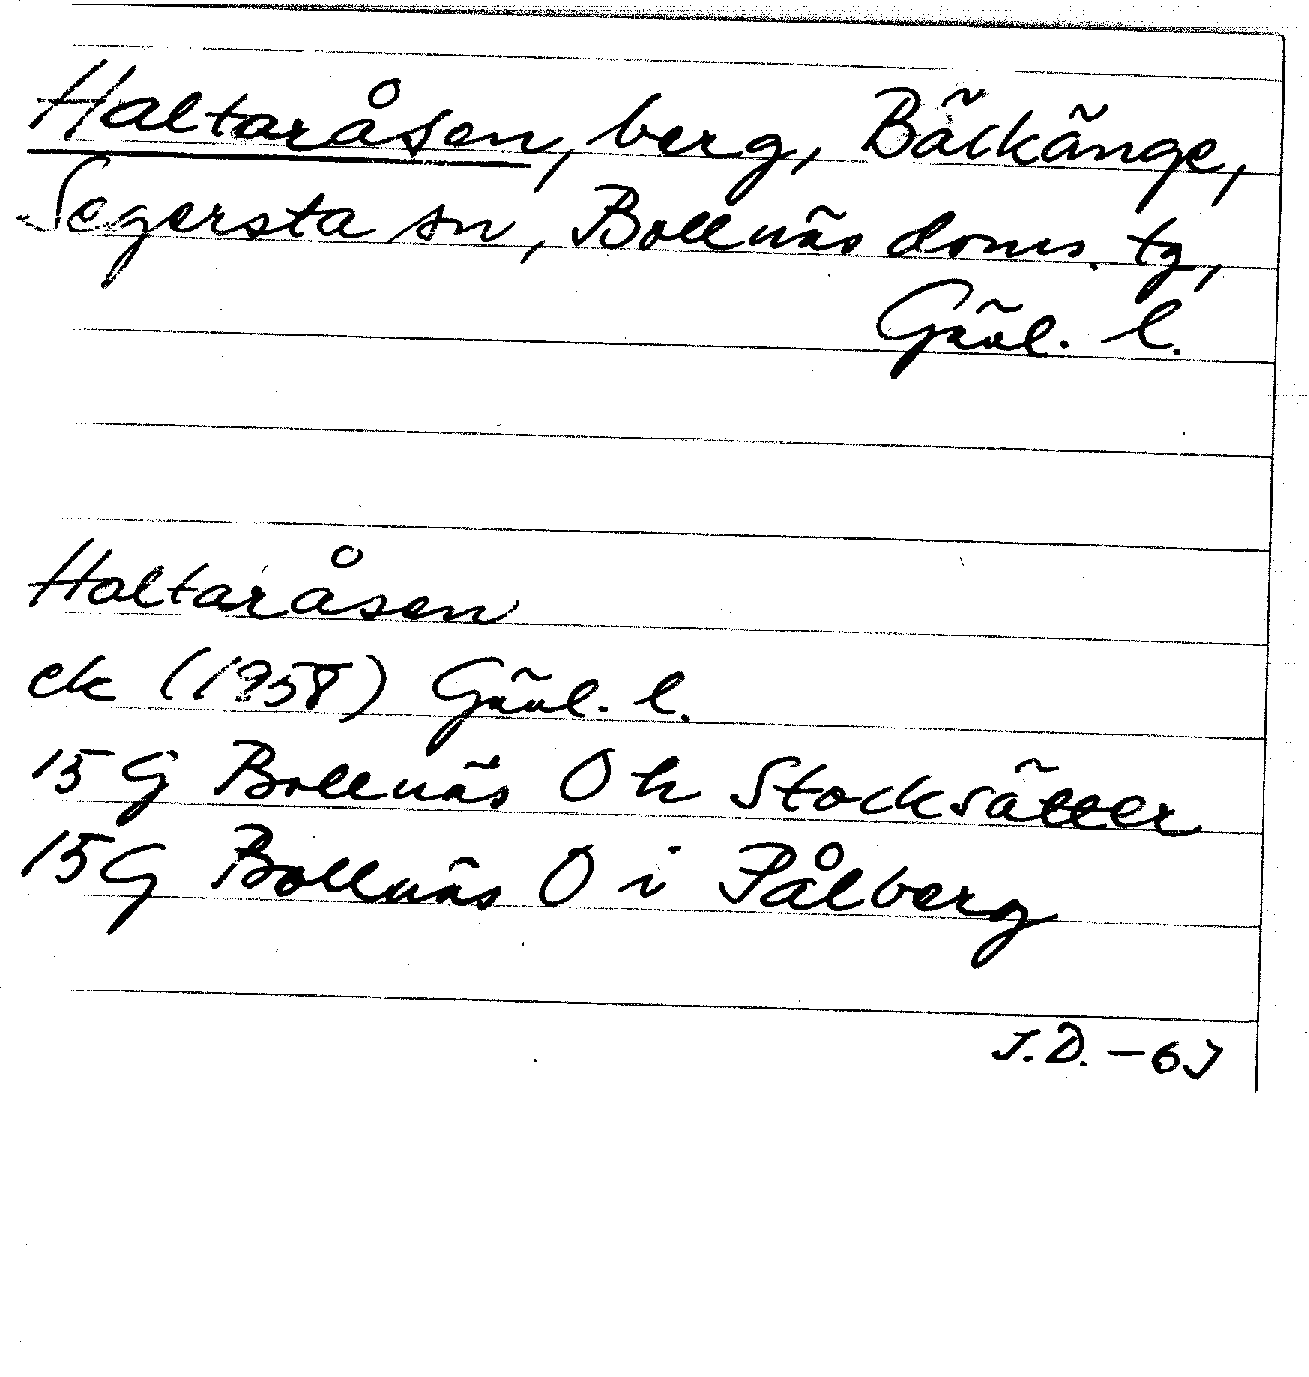 Haltaråsen, berg, Bäckänge,
Segersta sn, Bollnäs doms. tg,
Gävl. l.
Haltaråsen
ek (1958) Gävl. l.
15 G Bollnäs 0 h Stocksätter
15 G Bollnäs 0 i Pålberg
J.D. -67